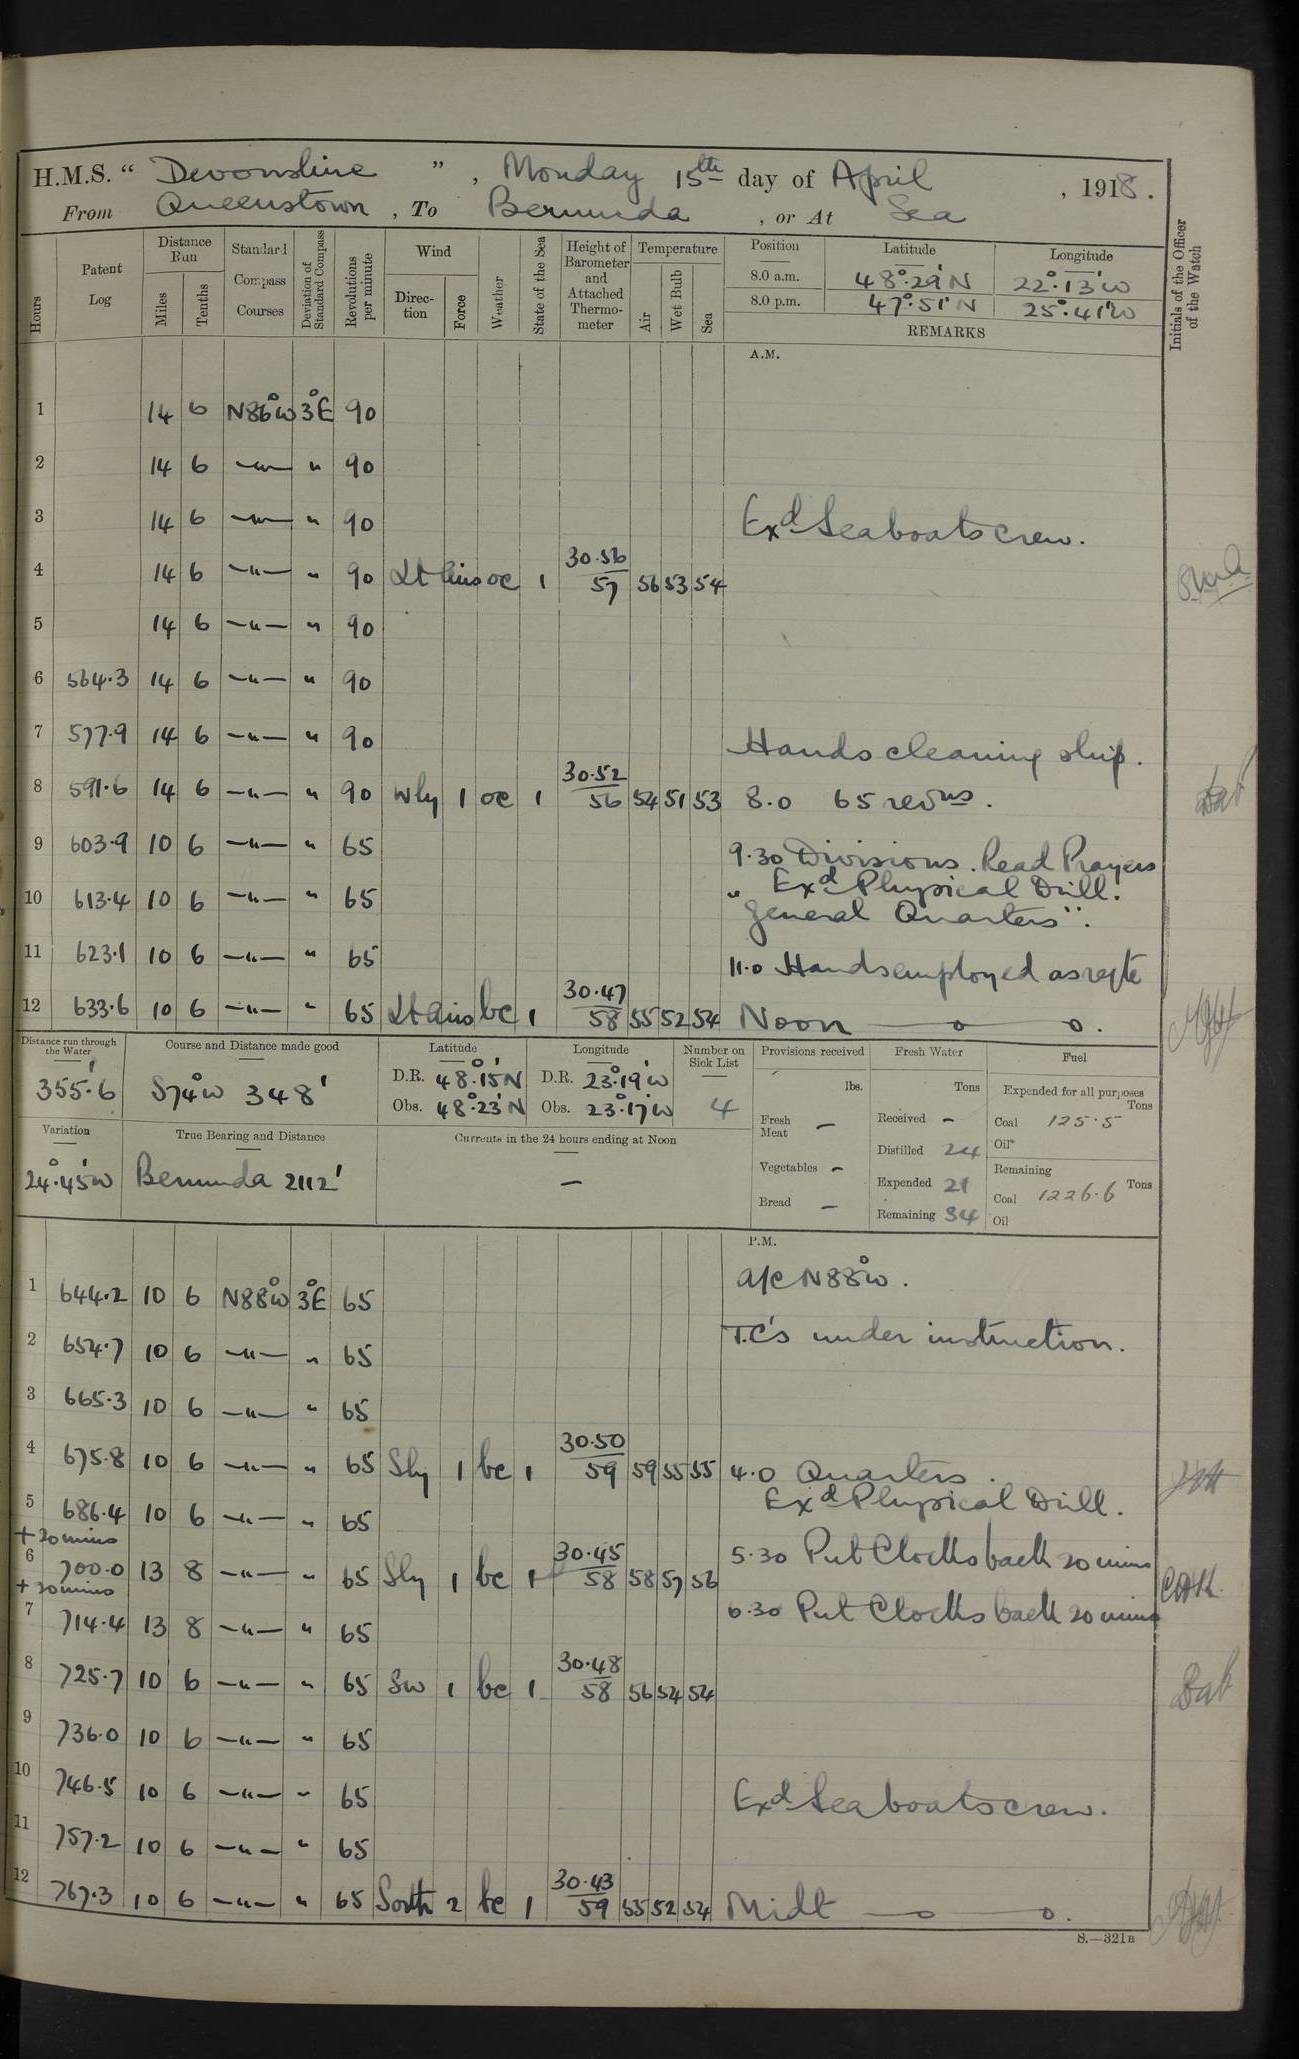 H.M.S. " Devonshire ", Monday 15th day of April, 1918.
From Queenstown, To Bermuda, or At Sea
Hours Patent Log Distance Run Miles Tenths Standard Compass Courses Deviation of Standard Compass Revolutions per minute Wind Direction Force Weather State of the Sea Height of Barometer and Attached Thermometer Temperature Air Wet Bulb Sea Position Latitude Longitude
8.0 a.m. 48°.29'N 22°.13'W
8.0 p.m. 47°.51'N 25°.41'W
REMARKS
Initials of the Officer of the Watch
A.M.
1 14 6 N86°W 3°E 90
2 14 6 —"— " 90
3 14 6 —"— " 90 Exd Seaboats crew.
4 14 6 —"— " 90 Lt Airs oc 1 30.56 57 56 53 54
5 14 6 —"— " 90
6 564.3 14 6 —"— " 90
7 577.9 14 6 —"— " 90 Hands cleaning ship.
8 591.6 14 6 —"— " 90 Wly 1 oc 1 30.52 56 54 51 53 8.0 65 revns.
9 603.9 10 6 —"— " 65 9.30 Divisions. Read Prayers
10 613.4 10 6 —"— " 65 " Exd Physical Drill.
"General Quarters".
11 623.1 10 6 —"— " 65 11.0 Hands employed as reqte
12 633.6 10 6 —"— " 65 Lt Airs bc 1 30.47 58 55 52 54 Noon — o — o.
Distance run through the Water 355.6
Course and Distance made good S74°W 348'
Latitude D.R. 48°.15'N Obs. 48°.23'N
Longitude D.R. 23°.19'W Obs. 23°.17'W
Number on Sick List 4
Provisions received lbs.
Fresh Meat —
Vegetables —
Bread —
Fresh Water Tons
Received —
Distilled 24
Expended 21
Remaining 34
Fuel
Expended for all purposes Tons
Coal 125.5
Oil
Remaining Tons
Coal 1226.6
Oil
Variation 24°.45'W
True Bearing and Distance Bermuda 2112'
Currents in the 24 hours ending at Noon —
P.M.
1 644.2 10 6 N88°W 3°E 65 a/c N88°W.
2 654.7 10 6 —"— " 65 T.C's under instruction.
3 665.3 10 6 —"— " 65
4 675.8 10 6 —"— " 65 Sly 1 bc 1 30.50 59 59 55 55 4.0 Quarters.
Exd Physical Drill.
5 686.4 10 6 —"— " 65
+20 mins
6 700.0 13 8 —"— " 65 Sly 1 bc 1 30.45 58 58 57 56 5.30 Put Clocks back 20 mins
+20 mins
7 714.4 13 8 —"— " 65 6.30 Put Clocks back 20 mins
8 725.7 10 6 —"— " 65 SW 1 bc 1 30.48 58 56 54 54
9 736.0 10 6 —"— " 65
10 746.5 10 6 —"— " 65 Exd Seaboats crew.
11 757.2 10 6 —"— " 65
12 767.3 10 6 —"— " 65 South 2 bc 1 30.43 59 55 52 54 Midt — o — o.
S.—321B